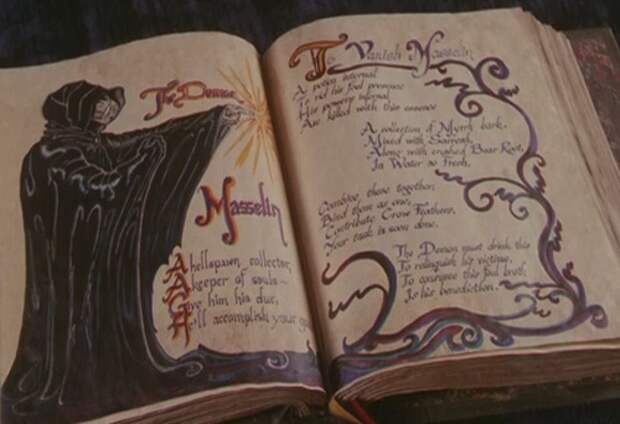 The Demon
Masselin
A hellspawn collector,
A keeper of souls—
Give him his due,
He'll accomplish your
To Vanish Masselin
A potion internal
To rid his foul presence
His powers infernal
Are killed with this essence
A collection of Myrrh bark,
Mixed with
Along with crushed Boar Root,
In Water so fresh.
Combine these together,
Bind them as one,
Contribute Crow Feathers,
Your task is soon done.
The Demon must drink this
To relinquish his victims,
To consume this foul broth,
Is his benediction.